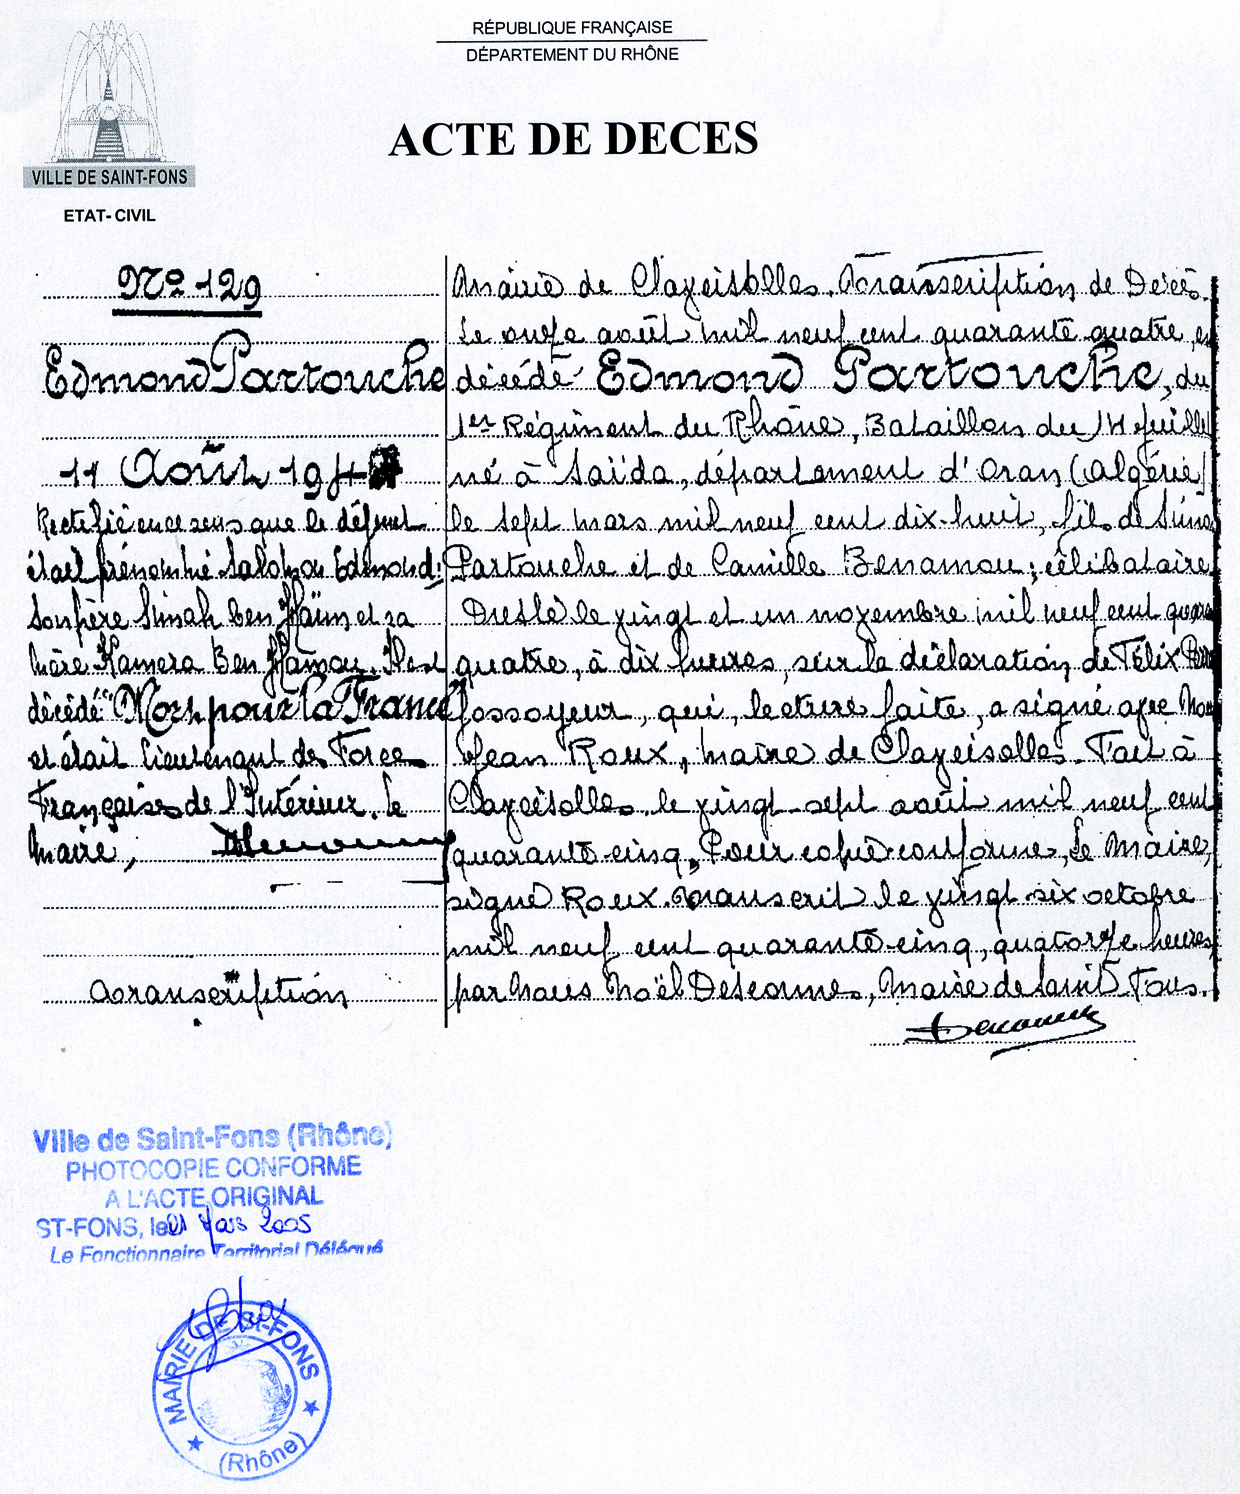 RÉPUBLIQUE FRANÇAISE
DÉPARTEMENT DU RHÔNE
VILLE DE SAINT-FONS
ETAT-CIVIL
ACTE DE DECES
No 129
Edmond Partouche
11 Août 194
Rectifié en ce sens que le défunt
était prénommé Salomon Edmond;
son père Simah Ben Haïm et sa
mère Kamera Ben Hamou. Il est
décédé "Mort pour la France"
et était lieutenant des Forces
Françaises de l'Intérieur. Le
Maire,
Transcription
Mairie de Claveisolles. Transcription de Décès.
Le onze août mil neuf cent quarante quatre, est
décédé Edmond Partouche, du
1er Régiment du Rhône, Bataillon du 14 juillet
né à Saïda, département d'Oran (Algérie)
le sept mars mil neuf cent dix-huit, fils de Sima
Partouche et de Camille Benamou; célibataire
Dressé le vingt et un novembre mil neuf cent quaran
quatre, à dix heures, sur la déclaration de Félix
fossoyeur, qui, lecture faite, a signé avec Nous
Jean Roux, maire de Claveisolles. Fait à
Claveisolles, le vingt-sept août mil neuf cent
quarante-cinq. Pour copie conforme, Le Maire,
signé Roux. Transcrit le vingt-six octobre
mil neuf cent quarante-cinq, quatorze heures,
par Nous Noël Descormes, Maire de Saint-Fons.
Ville de Saint-Fons (Rhône)
PHOTOCOPIE CONFORME
A L'ACTE ORIGINAL
ST-FONS, le 21 Mars 2005
Le Fonctionnaire Territorial Délégué
MAIRIE DE ST-FONS
(Rhône)